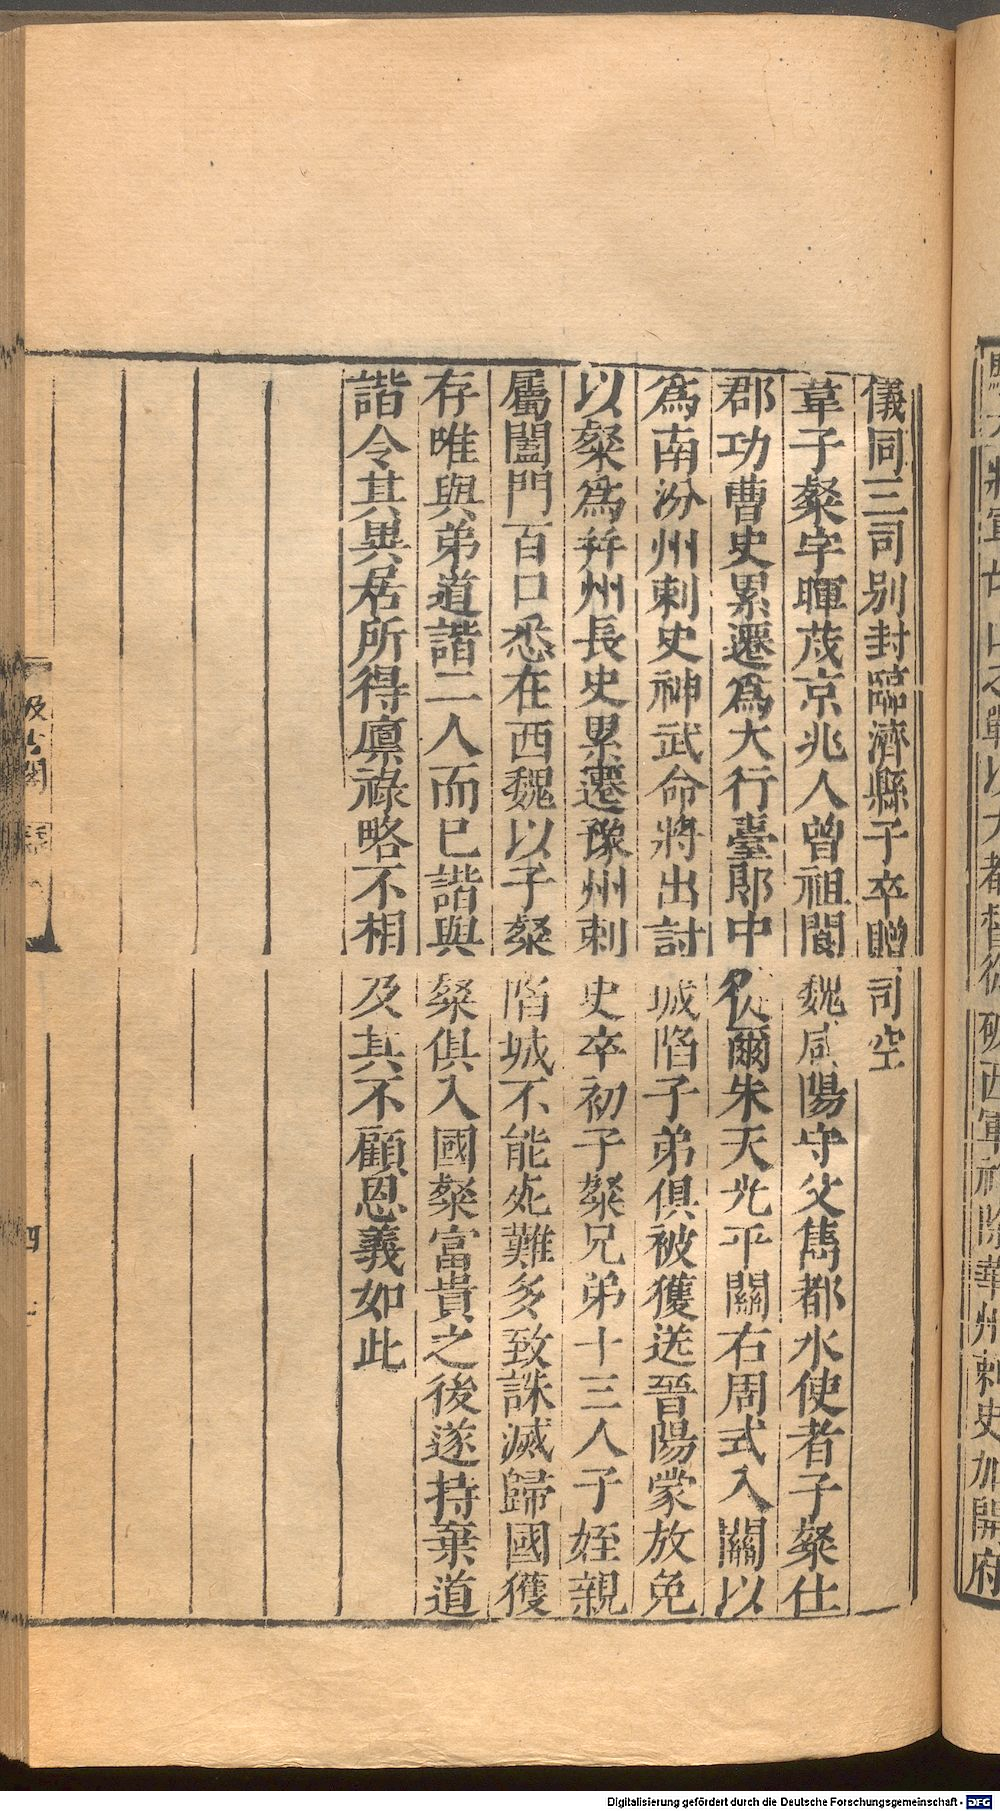 儀同三司别封臨濟縣子卒贈司空
韋子粲字暉茂京兆人曾祖閬魏咸陽守父雋都水使者子粲仕
郡功曹史累遷爲大行臺郎中從爾朱天光平關右周式入關以
爲南汾州刺史神武命將出討城陷子弟俱被獲送晉陽蒙放免
以粲爲并州長史累遷豫州刺史卒初子粲兄弟十三人子姪親
屬闔門百口悉在西魏以子粲陷城不能死難多致誅滅歸國獲
存唯與弟道諧二人而已諧與粲俱入國粲富貴之後遂持棄道
諧令其異居所得廩祿略不相及其不顧恩義如此
汲古閣
四
將軍
戰以大都督從破西軍
除華州刺史加開府
Digitalisierung gefördert durch die Deutsche Forschungsgemeinschaft - DFG